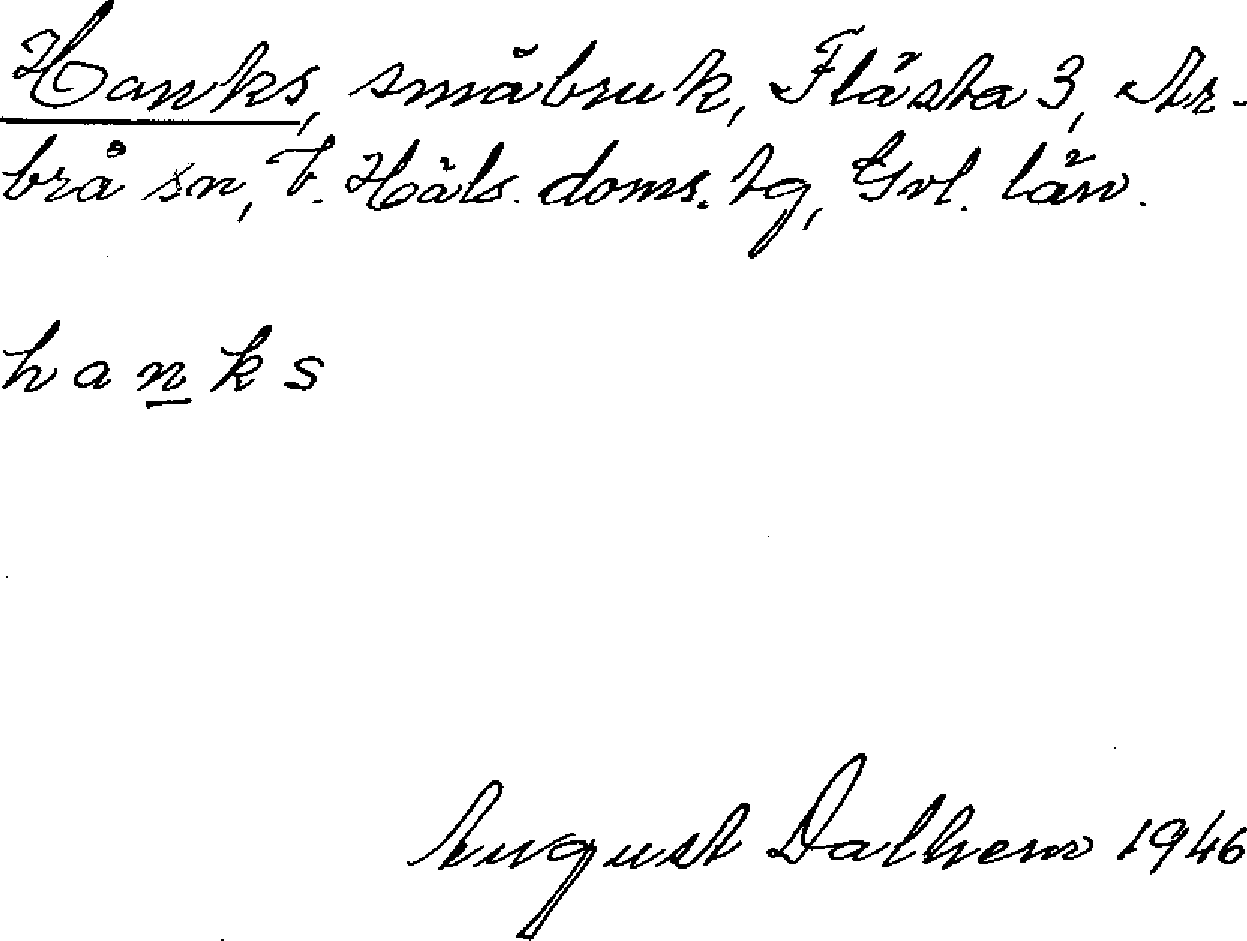 Hanks, småbruk, Flästa 3, Ar-
brå sn, V. Häls. doms. tg, Gvl. län.
hanks
August Dalhem 1946